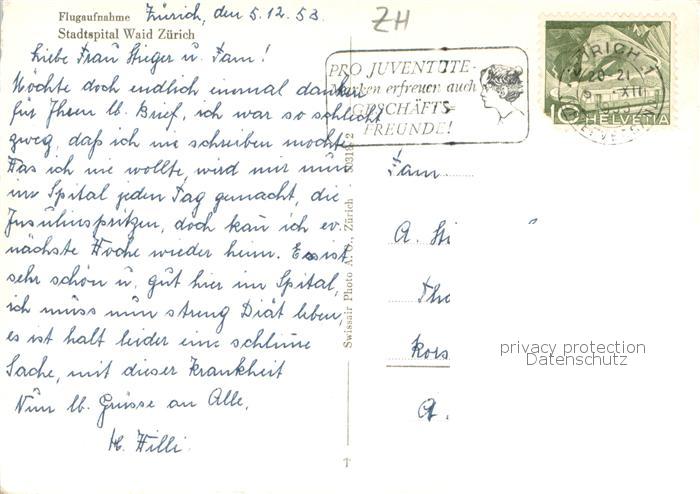 Flugaufnahme
Stadtspital Waid Zürich
Zürich, den 5.12.53
ZH
Liebe Frau Stieger u. Fam!
Möchte doch endlich einmal danken
für Ihren lb. Brief, ich war so schlecht
zweg, daß ich nie schreiben mochte
Was ich nie wollte, wird mir nun
im Spital jeden Tag gemacht, die
Insulinspritzen, doch kan ich ev.
nächste Woche wieder heim. Es ist
sehr schön u. gut hier im Spital,
ich muss nun streng Diät leben,
es ist halt leider eine schlime
Sache, mit dieser Krankheit
Nun lb. Grüsse an Alle,
Willi.
Swissair Photo A. G., Zürich
PRO JUVENTUTE-
Marken erfreuen auch
GESCHÄFTS=
FREUNDE!
ZÜRICH 1
20-21
XII
10 HELVETIA
Fam
A. Sti
Tha
Kors
A.
privacy protection
Datenschutz